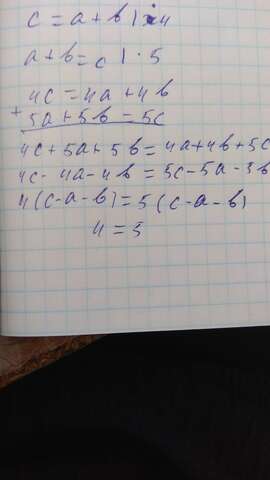 c = a + b | · 4
a + b = c | · 5
4c = 4a + 4b
+ 5a + 5b = 5c
4c + 5a + 5b = 4a + 4b + 5c
4c - 4a - 4b = 5c - 5a - 5b
4(c - a - b) = 5(c - a - b)
4 = 5